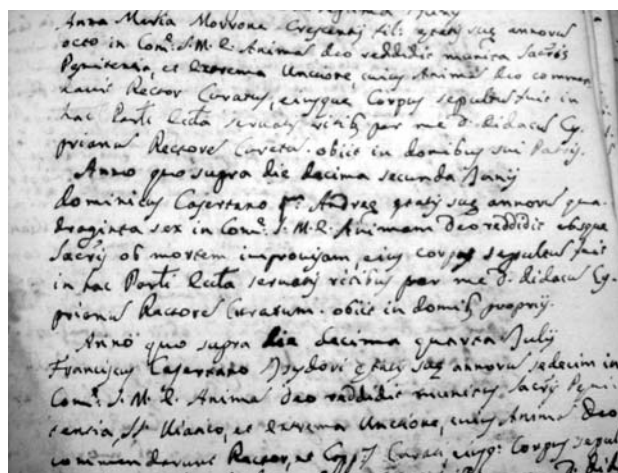 Anna Maria Morrone Crescentij fil: ętatis suę annorũ
octo in Comẽ. S. M. E. Animã deo reddidit munita Sacris
Pęnitentia, et Extrema Unctione, cuius Animã deo commen
davit Rector Curatus, eiusque Corpus sepultus fuit in
hac Parlĩ Eccła servatis ritibꝰ per me d. didacũ Cy-
prianũ Rectorẽ Curatũ. obiit in domibus sui Patris.
Anno quo supra die decima secunda Junij
dominicus Casertano Andreę ętatis suę annorũ qua-
draginta sex in Comẽ. S. M. E. Animam deo reddidit absque
Sacris ob mortem improvisam, eius corpus sepultus fuit
in hac Parlĩ Eccła servatis ritibus per me d. didacũ Cy-
prianũ Rectorẽ Curatum. obiit in domibꝰ proprijs.
Anno quo supra die decima quarta Julij
Franciscus Casertano Isydori ętatis suę annorũ sedecim in
Comẽ. S. M. E. Animã deo reddidit munitus Sacris Pęni
tentia, SS. Viatico, et Extrema Unctione, cuius Animã deo
commendarunt Rector, et Curati eiusq: Corpus sepul